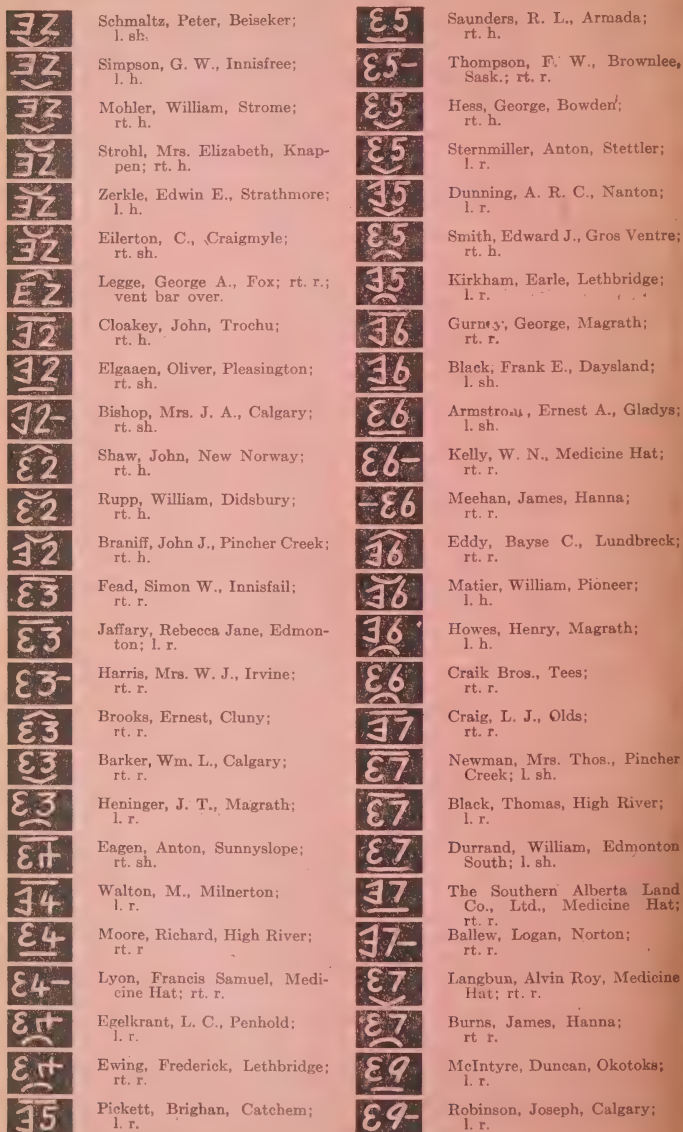 Schmaltz, Peter, Beiseker;
l. sh.
Simpson, G. W., Innisfree;
l. h.
Mohler, William, Strome;
rt. h.
Strohl, Mrs. Elizabeth, Knap-
pen; rt. h.
Zerkle, Edwin E., Strathmore;
l. h.
Eilerton, C., Craigmyle;
rt. sh.
Legge, George A., Fox; rt. r.;
vent bar over.
Cloakey, John, Trochu;
rt. h.
Elgaaen, Oliver, Pleasington;
rt. sh.
Bishop, Mrs. J. A., Calgary;
rt. sh.
Shaw, John, New Norway;
rt. h.
Rupp, William, Didsbury;
rt. h.
Braniff, John J., Pincher Creek;
rt. h.
Fead, Simon W., Innisfail;
rt. r.
Jaffary, Rebecca Jane, Edmon-
ton; l. r.
Harris, Mrs. W. J., Irvine;
rt. r.
Brooks, Ernest, Cluny;
rt. r.
Barker, Wm. L., Calgary;
rt. r.
Heninger, J. T., Magrath;
l. r.
Eagen, Anton, Sunnyslope;
rt. sh.
Walton, M., Milnerton;
l. r.
Moore, Richard, High River;
rt. r
Lyon, Francis Samuel, Medi-
cine Hat; rt. r.
Egelkrant, L. C., Penhold;
l. r.
Ewing, Frederick, Lethbridge;
rt. r.
Pickett, Brighan, Catchem;
l. r.
Saunders, R. L., Armada;
rt. h.
Thompson, F. W., Brownlee,
Sask.; rt. r.
Hess, George, Bowden;
rt. h.
Sternmiller, Anton, Stettler;
l. r.
Dunning, A. R. C., Nanton;
l. r.
Smith, Edward J., Gros Ventre;
rt. h.
Kirkham, Earle, Lethbridge;
l. r.
Gurney, George, Magrath;
rt. r.
Black, Frank E., Daysland;
l. sh.
Armstrong, Ernest A., Gladys;
l. sh.
Kelly, W. N., Medicine Hat;
rt. r.
Meehan, James, Hanna;
rt. r.
Eddy, Bayse C., Lundbreck;
rt. r.
Matier, William, Pioneer;
l. h.
Howes, Henry, Magrath;
l. h.
Craik Bros., Tees;
rt. r.
Craig, L. J., Olds;
rt. r.
Newman, Mrs. Thos., Pincher
Creek; l. sh.
Black, Thomas, High River;
l. r.
Durrand, William, Edmonton
South; l. sh.
The Southern Alberta Land
Co., Ltd., Medicine Hat;
rt. r.
Ballew, Logan, Norton;
rt. r.
Langbun, Alvin Roy, Medicine
Hat; rt. r.
Burns, James, Hanna;
rt r.
McIntyre, Duncan, Okotoks;
l. r.
Robinson, Joseph, Calgary;
l. r.